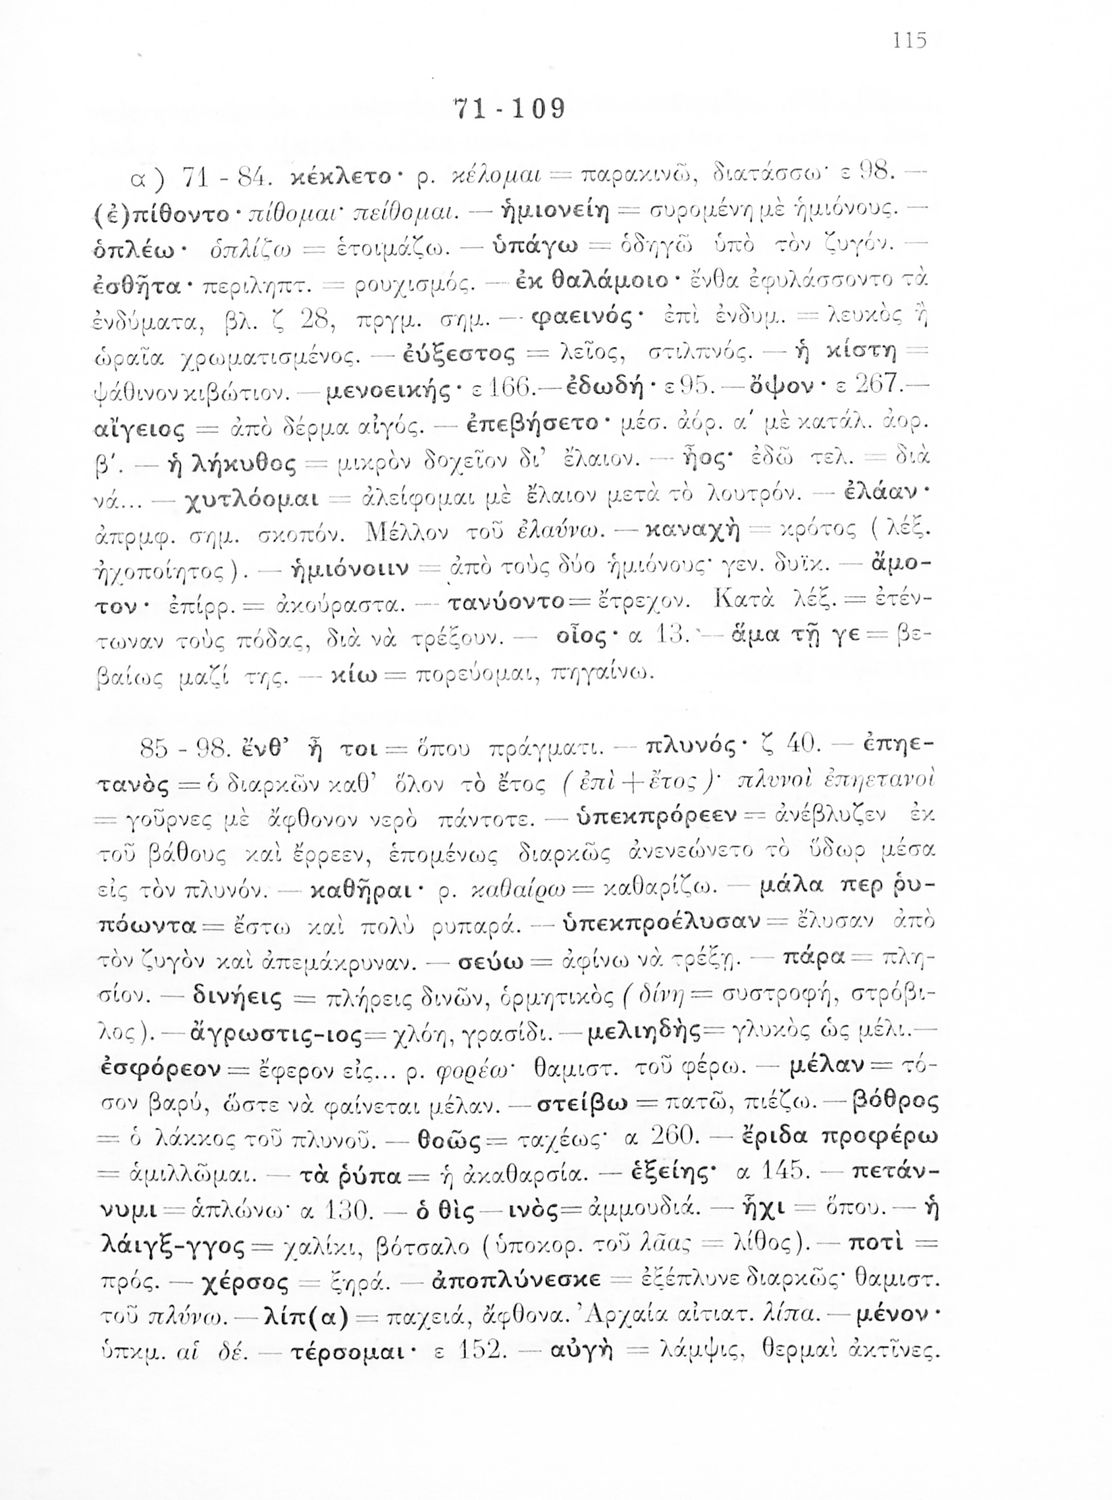 115
71 - 109
α) 71 - 84. κέκλετο· ρ. κέλομαι = παρακινῶ, διατάσσω· ε 98. —
(ἐ)πίθοντο· πίθομαι· πείθομαι. — ἡμιονείη = συρομένη μὲ ἡμιόνους. —
ὁπλέω· ὁπλίζω = ἑτοιμάζω. — ὑπάγω = ὁδηγῶ ὑπὸ τὸν ζυγόν. —
ἐσθῆτα· περιληπτ. = ρουχισμός. — ἐκ θαλάμοιο· ἔνθα ἐφυλάσσοντο τὰ
ἐνδύματα, βλ. ζ 28, πργμ. σημ. — φαεινός· ἐπὶ ἐνδυμ. = λευκὸς ἢ
ὡραῖα χρωματισμένος. — ἐύξεστος = λεῖος, στιλπνός. — ἡ κίστη =
ψάθινον κιβώτιον. — μενοεικής· ε 166. — ἐδωδή· ε 95. — ὄψον· ε 267. —
αἴγειος = ἀπὸ δέρμα αἰγός. — ἐπεβήσετο· μέσ. ἀόρ. α' μὲ κατάλ. ἀορ.
β'. — ἡ λήκυθος = μικρὸν δοχεῖον δι' ἔλαιον. — ἧος· ἐδῶ τελ. = διὰ
νά... — χυτλόομαι = ἀλείφομαι μὲ ἔλαιον μετὰ τὸ λουτρόν. — ἐλάαν·
ἀπρμφ. σημ. σκοπόν. Μέλλον τοῦ ἐλαύνω. — καναχὴ = κρότος (λέξ.
ἠχοποίητος). — ἡμιόνοιιν = ἀπὸ τοὺς δύο ἡμιόνους· γεν. δυϊκ. — ἄμο-
τον· ἐπίρρ. = ἀκούραστα. — τανύοντο = ἔτρεχον. Κατὰ λέξ. = ἐτέν-
τωναν τοὺς πόδας, διὰ νὰ τρέξουν. — οἶος· α 13. — ἅμα τῇ γε = βε-
βαίως μαζί της. — κίω = πορεύομαι, πηγαίνω.
85 - 98. ἔνθ' ἦ τοι = ὅπου πράγματι. — πλυνός· ζ 40. — ἐπηε-
τανὸς = ὁ διαρκῶν καθ' ὅλον τὸ ἔτος (ἐπὶ + ἔτος)· πλυνοὶ ἐπηετανοὶ
= γοῦρνες μὲ ἄφθονον νερὸ πάντοτε. — ὑπεκπρόρεεν = ἀνέβλυζεν ἐκ
τοῦ βάθους καὶ ἔρρεεν, ἑπομένως διαρκῶς ἀνενεώνετο τὸ ὕδωρ μέσα
εἰς τὸν πλυνόν. — καθῆραι· ρ. καθαίρω = καθαρίζω. — μάλα περ ῥυ-
πόωντα = ἔστω καὶ πολὺ ρυπαρά. — ὑπεκπροέλυσαν = ἔλυσαν ἀπὸ
τὸν ζυγὸν καὶ ἀπεμάκρυναν. — σεύω = ἀφίνω νὰ τρέξῃ. — πάρα = πλη-
σίον. — δινήεις = πλήρεις δινῶν, ὁρμητικὸς (δίνη = συστροφή, στρόβι-
λος). — ἄγρωστις-ιος = χλόη, γρασίδι. — μελιηδὴς = γλυκὸς ὡς μέλι. —
ἐσφόρεον = ἔφερον εἰς... ρ. φορέω· θαμιστ. τοῦ φέρω. — μέλαν = τό-
σον βαρύ, ὥστε νὰ φαίνεται μέλαν. — στείβω = πατῶ, πιέζω. — βόθρος
= ὁ λάκκος τοῦ πλυνοῦ. — θοῶς = ταχέως· α 260. — ἔριδα προφέρω
= ἁμιλλῶμαι. — τὰ ῥύπα = ἡ ἀκαθαρσία. — ἑξείης· α 145. — πετάν-
νυμι = ἁπλώνω· α 130. — ὁ θὶς — ινὸς = ἀμμουδιά. — ἧχι = ὅπου. — ἡ
λάιγξ-γγος = χαλίκι, βότσαλο (ὑποκορ. τοῦ λᾶας = λίθος). — ποτὶ =
πρός. — χέρσος = ξηρά. — ἀποπλύνεσκε = ἐξέπλυνε διαρκῶς· θαμιστ.
τοῦ πλύνω. — λίπ(α) = παχειά, ἄφθονα. Ἀρχαία αἰτιατ. λίπα. — μένον·
ὑπκμ. αἱ δέ. — τέρσομαι· ε 152. — αὐγὴ = λάμψις, θερμαὶ ἀκτῖνες.